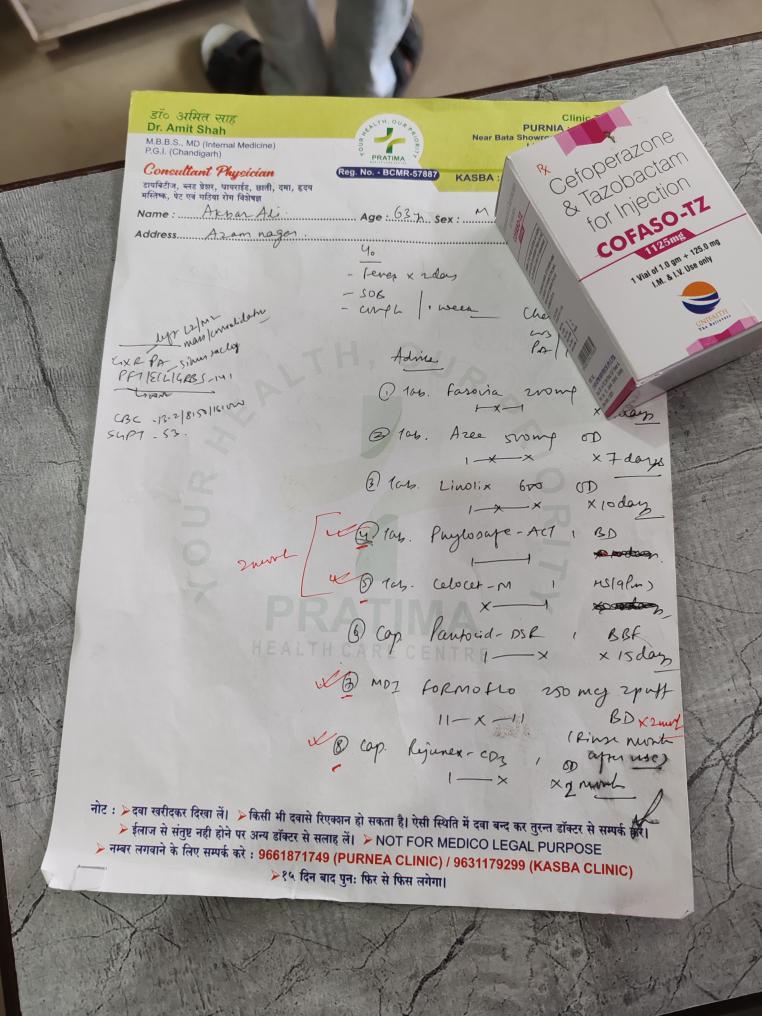 डॉ० अमित साह
Dr. Amit Shah
M.B.B.S., MD (Internal Medicine)
P.G.I. (Chandigarh)
Consultant Physician
डायबिटीज, ब्लड प्रेशर, थायराईड, छाती, दमा, हृदय
मस्तिष्क, पेट एवं गठिया रोग विशेषज्ञ
YOUR HEALTH, OUR PRIORITY
PRATIMA
Reg. No. - BCMR-57887
Clinic
PURNIA :
Near Bata Showro
KASBA :
Name : Akbar Ali Age : 63 Sex : M
Address Azam nagar
- fever x 2days
- SOB
- cough 1 week
CXR PA
CBC - 13.2/8150/
SGPT - 53
Advice
① Tab. Farovia 200mg
1—x—1
x days
② Tab. Azee 500mg OD
1—x—x x 7 days
③ Tab. Linolix 600 OD
1—x—x x 10 days
2 month
④ Tab. Phylosafe-ACT BD
1——1
⑤ Tab. Celocet-M HS (9pm)
x——1
⑥ Cap. Pantocid-DSR BBF
1——x x 15 days
⑦ MDI FORMOFLO 250 mcg 2puff
11—x—11 BD x 2 month
(Rinse mouth
after use)
⑧ Cap. Rejunex-CD3 OD
1——x x 2 month
YOUR HEALTH, OUR PRIORITY
PRATIMA
HEALTH CARE CENTRE
नोट : दवा खरीदकर दिखा लें। किसी भी दवासे रिएक्शन हो सकता है। ऐसी स्थिति में दवा बन्द कर तुरन्त डॉक्टर से सम्पर्क करें।
ईलाज से संतुष्ट नही होने पर अन्य डॉक्टर से सलाह लें। NOT FOR MEDICO LEGAL PURPOSE
नम्बर लगवाने के लिए सम्पर्क करे : 9661871749 (PURNEA CLINIC) / 9631179299 (KASBA CLINIC)
१५ दिन बाद पुनः फिर से फिस लगेगा।
Rx
Cefoperazone
& Tazobactam
for Injection
COFASO-TZ
1125mg
1 Vial of 1.0 gm + 125.0 mg
I.M. & I.V. Use only
UNIFAITH
The Believers